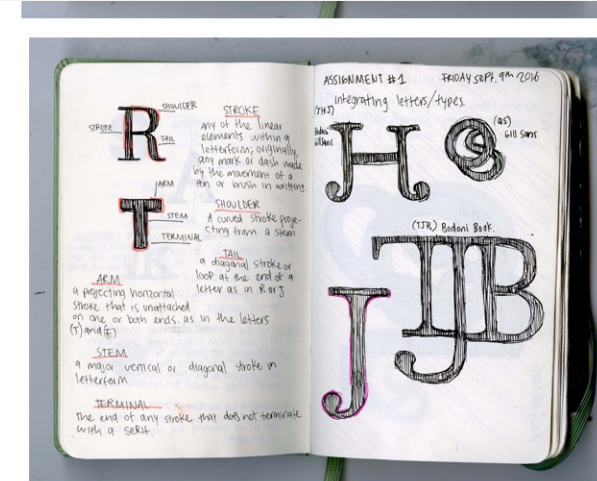 R
SHOULDER
STROKE
TAIL
STROKE
any of the linear
elements within a
letterform; originally,
any mark or dash made
by the movement of a
pen or brush in writting.
T
ARM
STEM
TERMINAL
SHOULDER
A curved stroke proje-
cting from a stem
TAIL
a diagonal stroke or
loop at the end of a
letter as in R or J
ARM
a projecting horizontal
stroke that is unattached
on one or both ends. as in the letters
(T) and (E)
STEM
a major vertical or diagonal stroke in
letterform
TERMINAL
The end of any stroke that does not terminate
with a serif.
ASSIGNMENT #1 FRIDAY SEPT. 9th 2016
integrating letters/types.
Bodoni
Gill Sans
JH
(QS)
Gill Sans
(TJB) Bodoni Book.
TJB
J